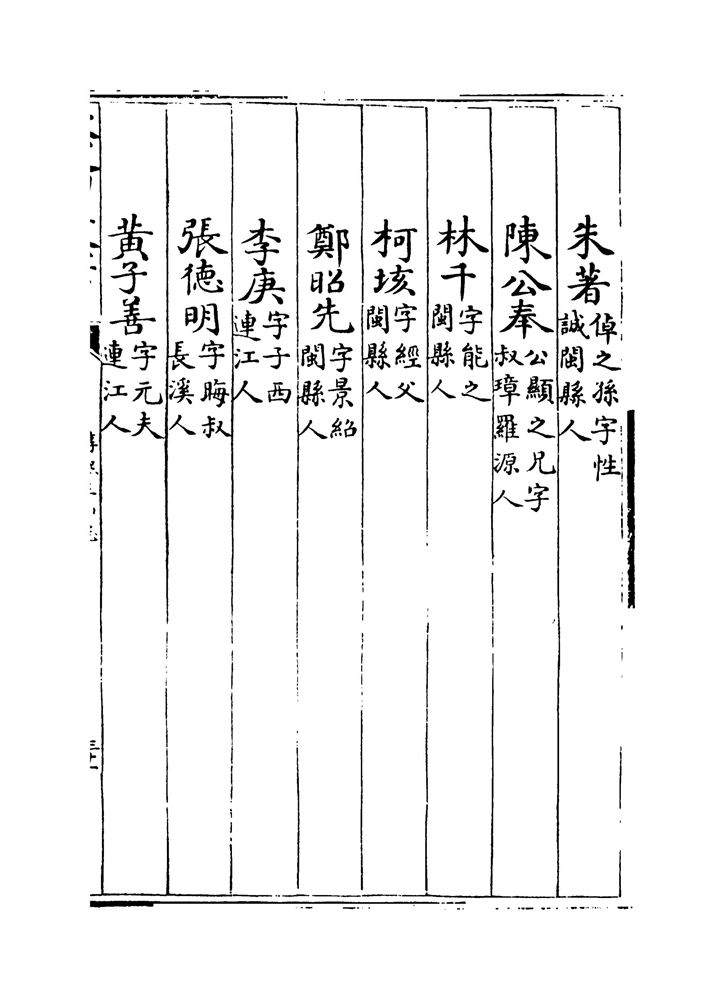 朱著倬之孫字性誠閩縣人
陳公奉公顯之兄字叔璋羅源人
林千字能之閩縣人
柯垓字經父閩縣人
鄭昭先字景紹閩縣人
李庚字子西連江人
張徳明字晦叔長溪人
黃子善字元夫連江人